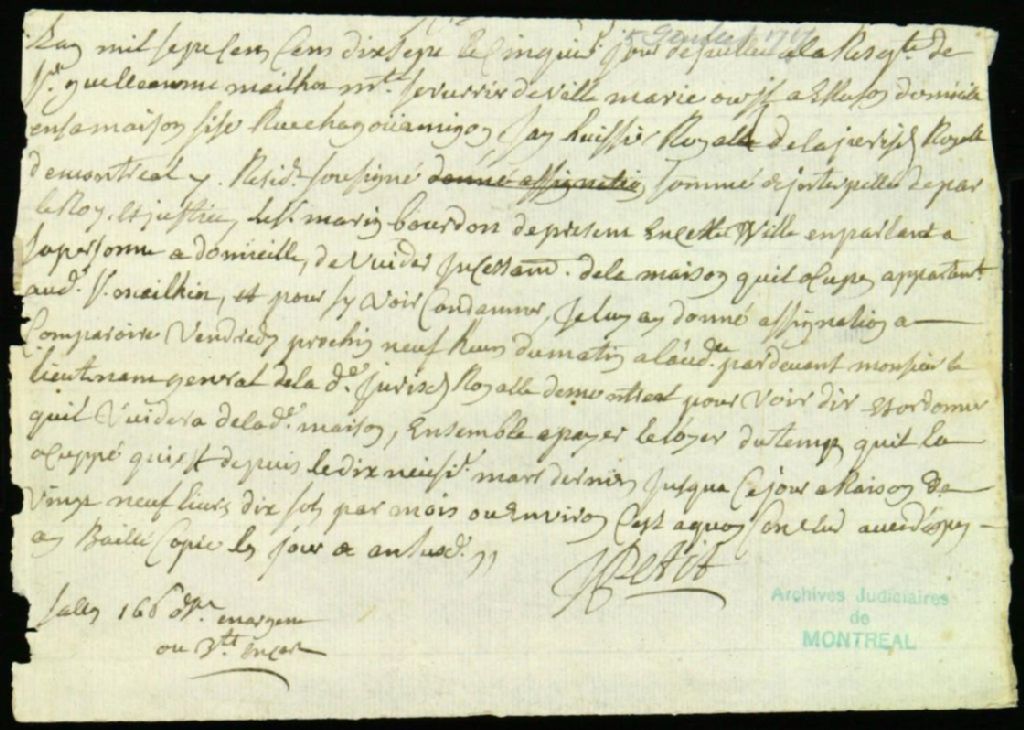 Lan mil sept cens cens dix sept le cinquie.e jour de juillet a la Reqte. de
Sr. guilleaume mailhot mtd. serurrir de ville marie ou il a Elu son domicile
en sa maison size Rue chagoüamigon Jay huissier Royalle de la jurisd. Royalle
de montreal y Resid.t soussigné donné assignation sommé & interpellé de par
le Roy. et justice, le Sr. marin bourdon de present En cette Ville en parlant a
sa personne a domicille, de Vuider Jncessam.t de la maison quil ocupe appartent
aud.t Sr. mailhiot, et pour sy Voir Condamner, Je luy ay donné assignation a
Comparoire Vendredy prochin neuf heures du matin a laud.ce pardevant monsieur le
lieutenant general de la d.e Jurisd. Royalle de montreal pour Voir dir Et ordonner
quil Vuidera de lad.e maison, Ensemble a payer le loyer du temps quil la
ocuppé qui est depuis le dix neufie. mars dernier Jusqua Ce jour a Raison de
Vingt neuf livres dix sols par mois ou Environ C'est a quoy Conclud avec despens
ay Baillé Copie les jour & an susd.
JPetit
16
ou
Archives Judiciaires
de
MONTREAL